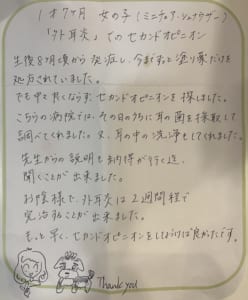 1才7ヶ月 女の子(ミニチュア・シュナウザー)
「外耳炎」でのセカンドオピニオン
生後8ヶ月頃から発症し、今までずっと塗り薬だけを
処方されていました。
でも中々良くならず、セカンドオピニオンを探しました。
こちらの病院では、その日のうちに耳の菌を採取して
調べてくれました。又、耳の中の洗浄もしてくれました。
先生からの説明も納得が行く迄、
聞くことが出来ました。
お陰様で、外耳炎は2週間程で
完治することが出来ました。
もっと早く、セカンドオピニオンをしていれば良かったです。
Thank you